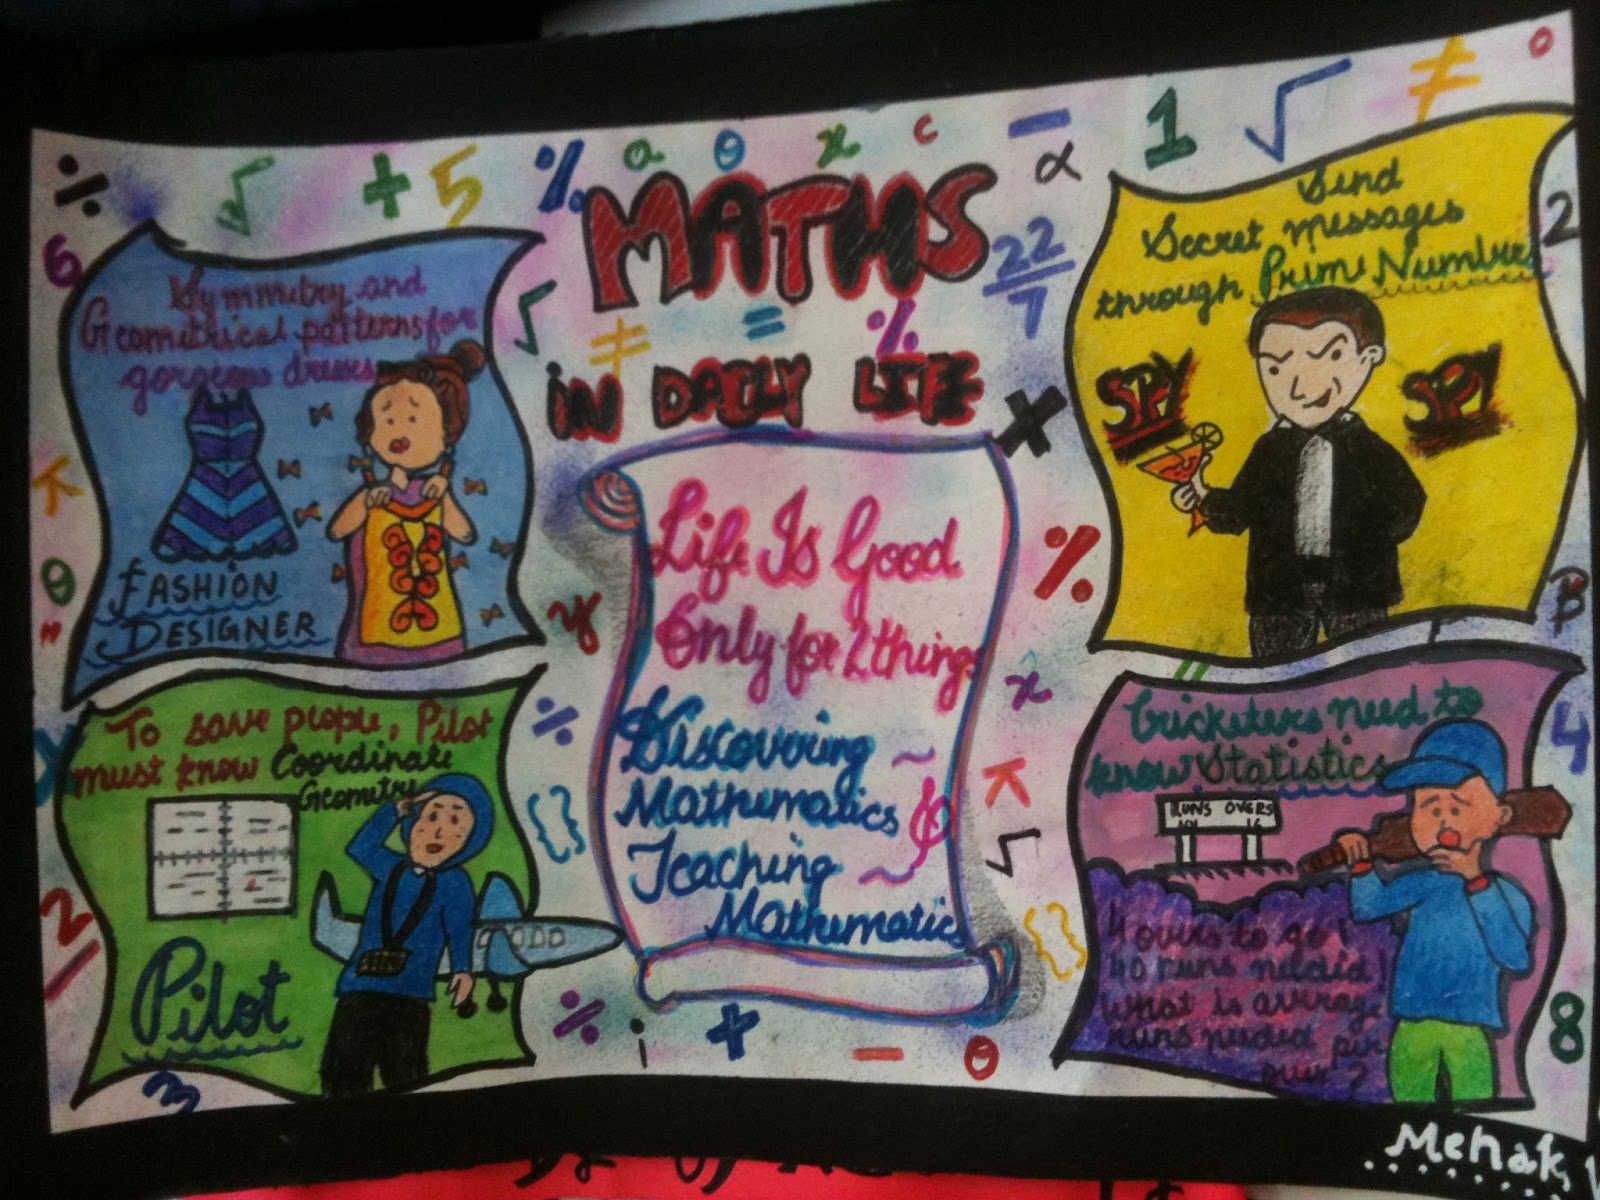 MATHS
IN DAILY LIFE
Symmetry and
Geometrical patterns for
gorgeous dresses
FASHION
DESIGNER
Send
Secret messages
through Prime Number
SPY
SPY
Life Is Good
Only for 2 things
Discovering
Mathematics
Teaching
Mathematics
To save people, Pilot
must know Coordinate
Geometry
Pilot
Cricketers need to
know Statistics
RUNS OVERS
101 16
4 overs to go!
40 runs needed!
What is average
runs needed per
over?
÷ √ + 5 % a θ x c - α 1 √ ≠ 0
6 √ ≠ = % 22/7 2
π × θ y % x B
% π 4
{} √ {}
2 8
3 % i + - θ
Mehak